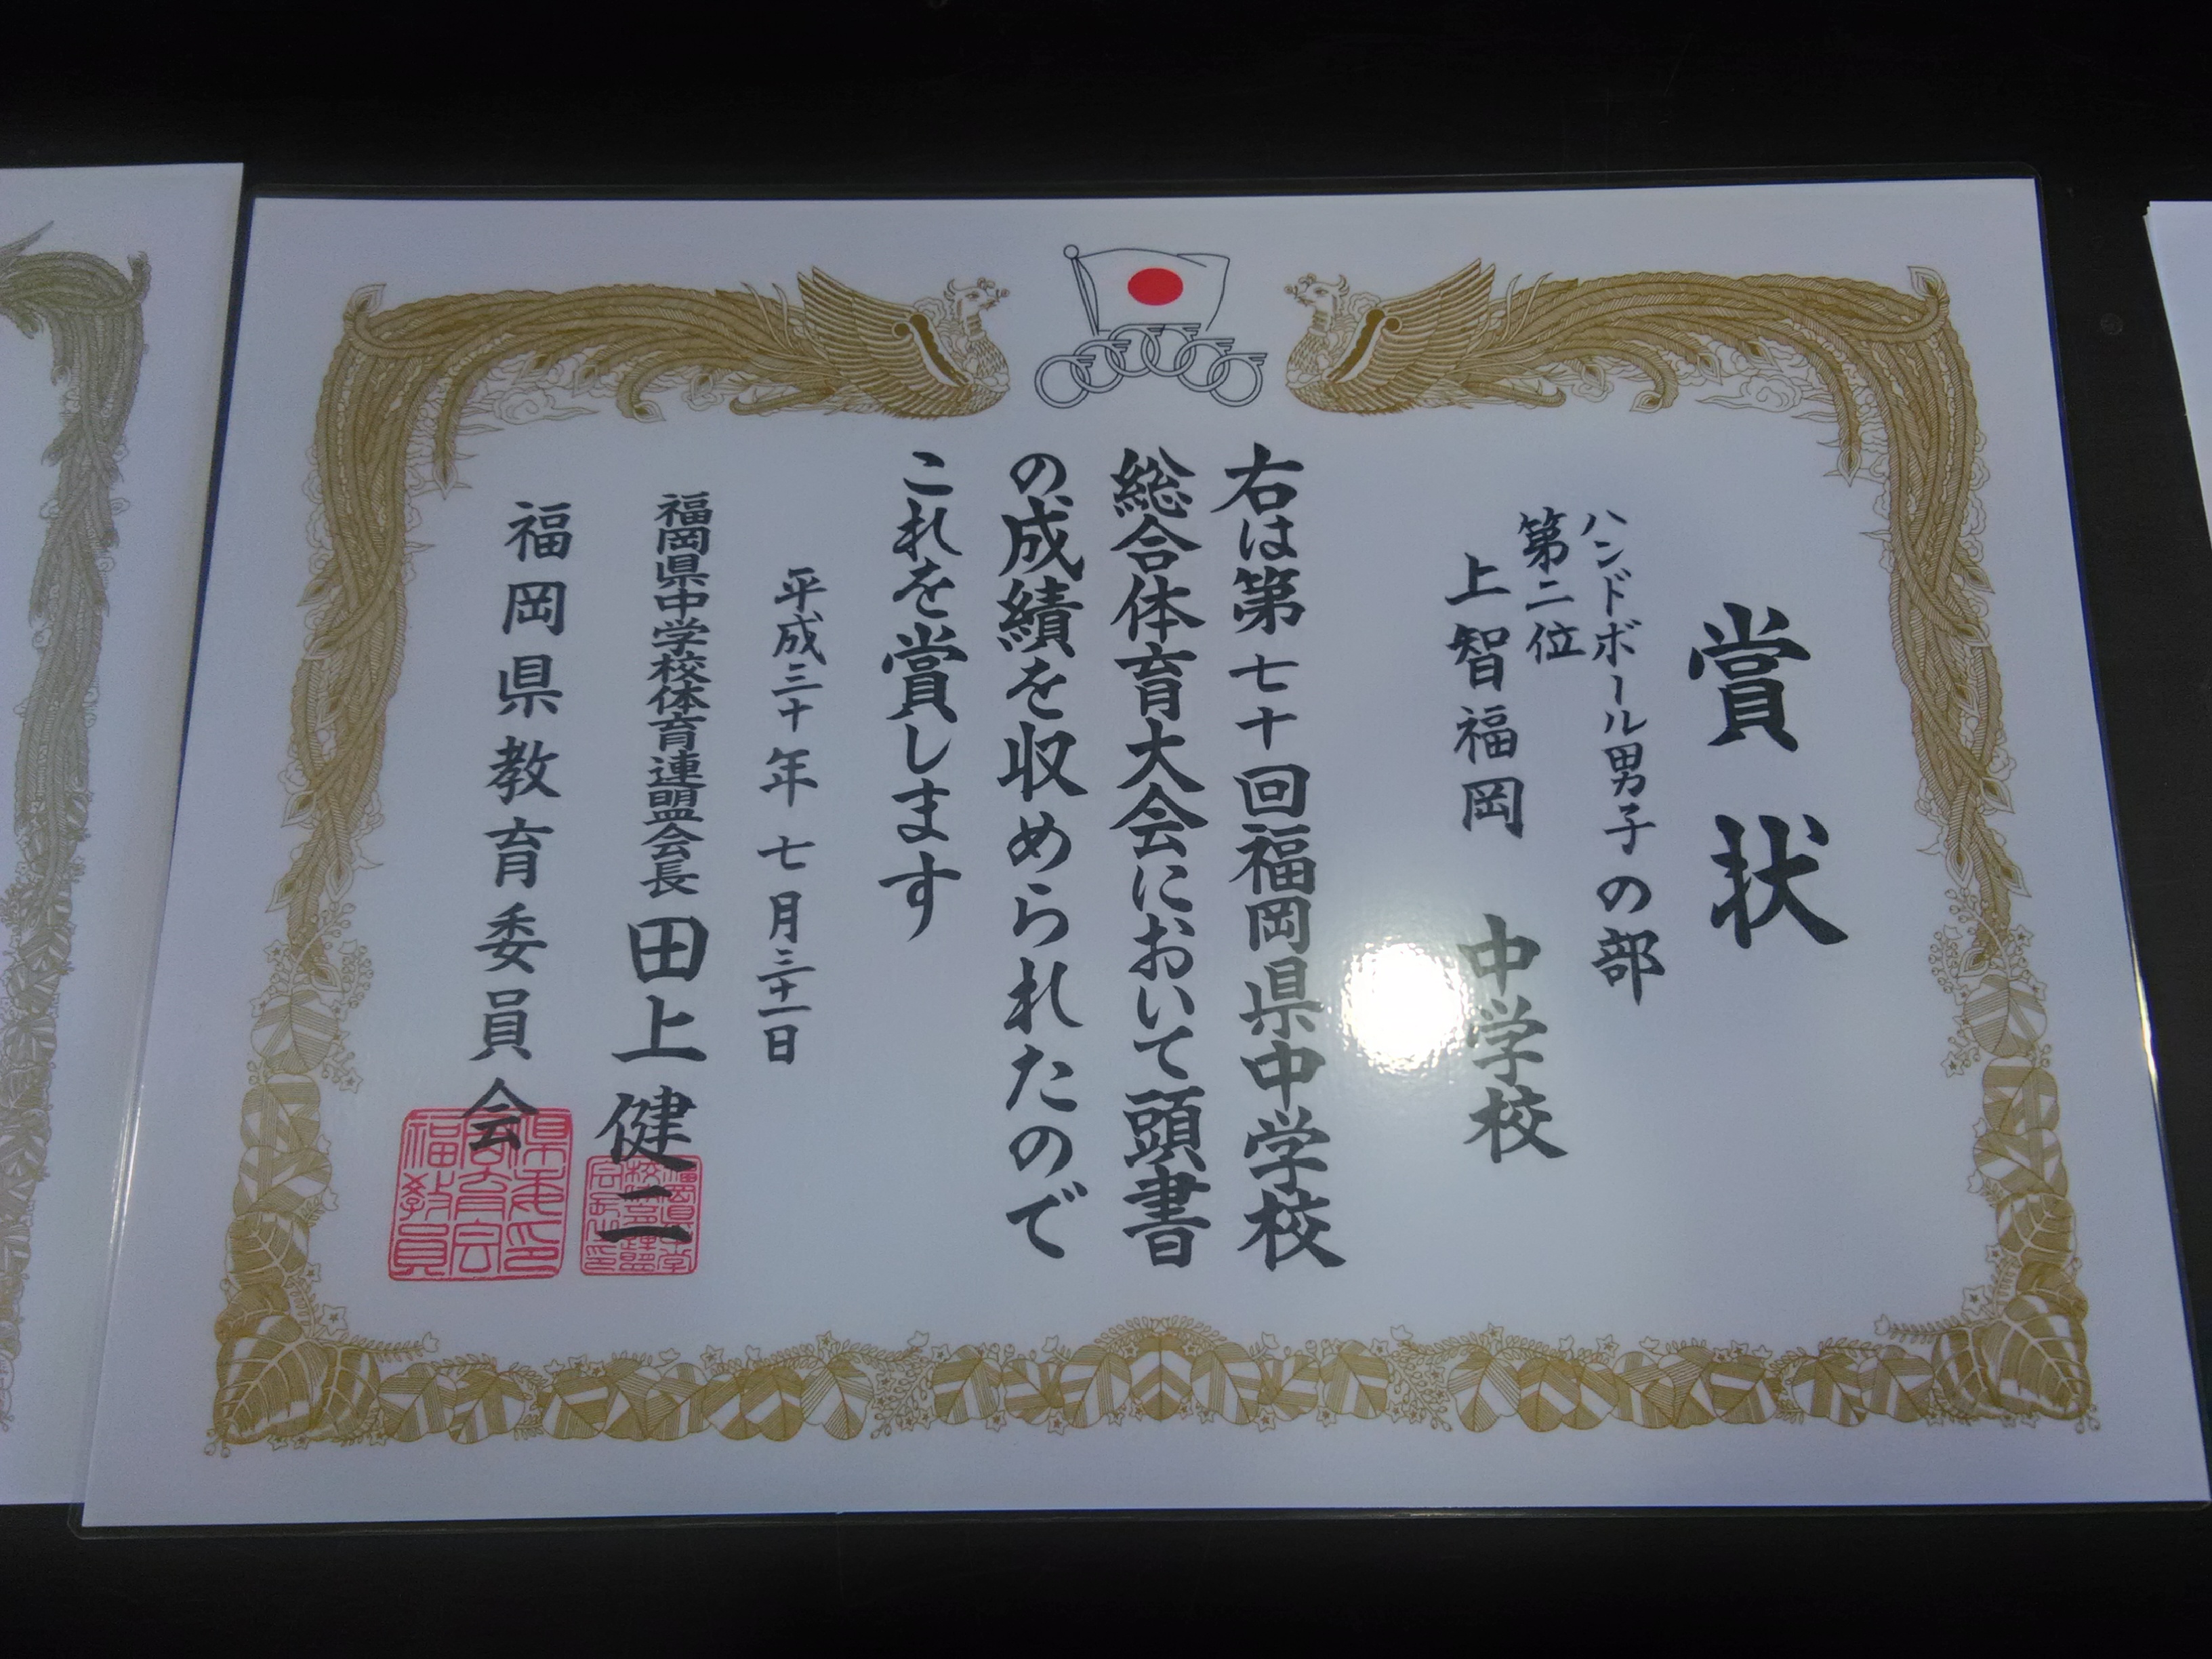 賞状
ハンドボール男子の部
第二位
上智福岡 中学校
右は第七十回福岡県中学校
総合体育大会において頭書
の成績を収められたので
これを賞します
平成三十年七月三十一日
福岡県中学校体育連盟会長 田上健二
福岡県教育委員会